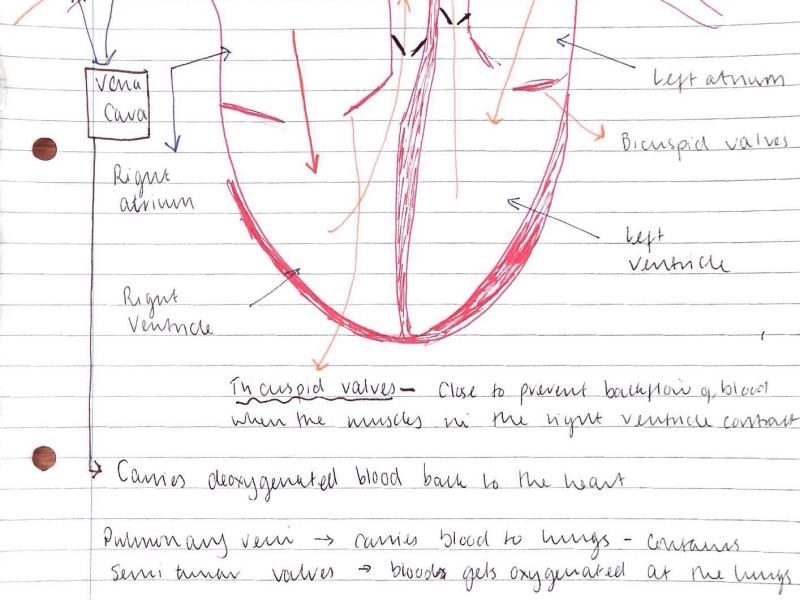 Vena
Cava
Left atrium
Bicuspid valves
Right
atrium
Left
ventricle
Right
Ventricle
Tricuspid valves - Close to prevent backflow of blood
when the muscles in the right ventricle contract
Carries deoxygenated blood back to the heart
Pulmonary vein → carries blood to lungs - contains
Semi lunar valves → bloods gets oxygenated at the lungs